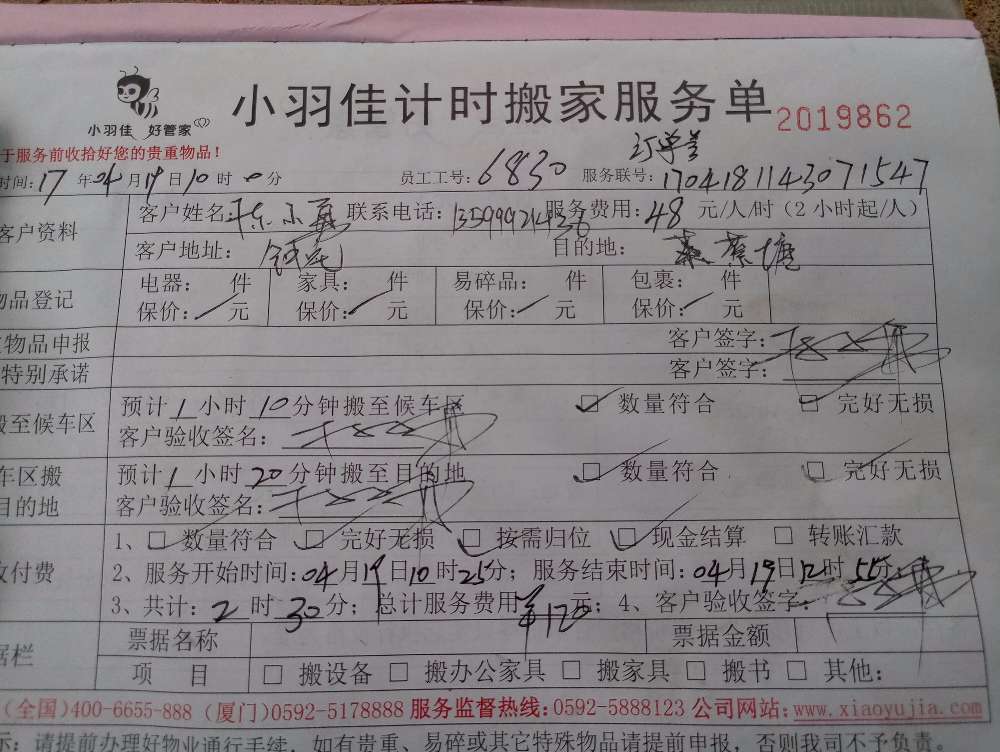 小羽佳计时搬家服务单 2019862
小羽佳 好管家
于服务前收拾好您的贵重物品！
时间：17年04月19日10时0分 员工工号：6830 服务联号：1704181143071547
客户资料 客户姓名： 联系电话：13599921436 服务费用：48元/人/时（2小时起/人）
客户地址： 目的地：蔡塘
物品登记 电器： 件 家具： 件 易碎品： 件 包裹： 件
保价： 元 保价： 元 保价： 元 保价： 元
物品申报 客户签字：
特别承诺 客户签字：
搬至候车区 预计1小时10分钟搬至候车区 ☑ 数量符合 ☑ 完好无损
客户验收签名：
车区搬 预计1小时20分钟搬至目的地 ☑ 数量符合 ☑ 完好无损
目的地 客户验收签名：
1、☑ 数量符合 ☑ 完好无损 ☑ 按需归位 ☑ 现金结算 □ 转账汇款
收付费 2、服务开始时间：04月19日10时25分；服务结束时间：04月19日12时55分；
3、共计：2时30分；总计服务费用¥120元；4、客户验收签字：
票据名称 票据金额
据栏 项 目 □ 搬设备 □ 搬办公家具 □ 搬家具 □ 搬书 □ 其他：
(全国)400-6655-888 (厦门)0592-5178888 服务监督热线：0592-5888123 公司网站：www.xiaoyujia.com
示：请提前办理好物业通行手续，如有贵重、易碎或其它特殊物品请提前申报，否则我司不予负责。